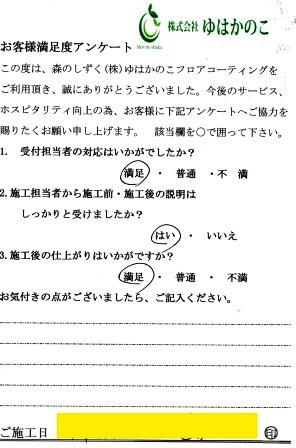 株式会社 ゆはかのこ
お客様満足度アンケート
この度は、森のしずく(株)ゆはかのこフロアコーティングを
ご利用頂き、誠にありがとうございました。今後のサービス、
ホスピタリティ向上の為、お客様に下記アンケートへご協力を
賜りたくお願い申し上げます。 該当欄を○で囲って下さい。
1. 受付担当者の対応はいかがでしたか?
満足 ・ 普通 ・不 満
2.施工担当者から施工前・施工後の説明は
しっかりと受けましたか?
はい ・ いいえ
3.施工後の仕上がりはいかがですか?
満足 ・ 普通 ・ 不満
お気付きの点がございましたら、ご記入ください。
ご施工日 ㊞